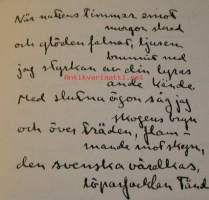 När nattens timmar emot
morgon skred
och glöden falnat, ljusen
brunnit ned
jag styrkan av din lyras
ande kände
Med slutna ögon såg jag
skogens bryn
och över träden, flam-
mande mot skyn,
den svenska vårdkas,
löparfacklan tänd
antikvariaatti.net